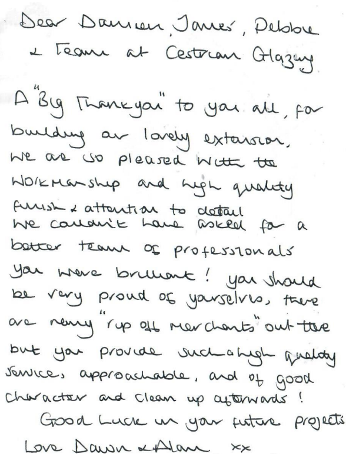 Dear Damien, James, Debbie
& Team at Cestrian Glazing
A "Big Thankyou" to you all, for
building our lovely extension,
we are so pleased with the
workmanship and high quality
finish & attention to detail
We couldn't have asked for a
better team of professionals
you were brilliant! you should
be very proud of yourselves, there
are many "rip off merchants" out there
but you provide such a high quality
service, approachable, and of good
character and clean up afterwards!
Good Luck in your future projects
Love Dawn & Alan xx